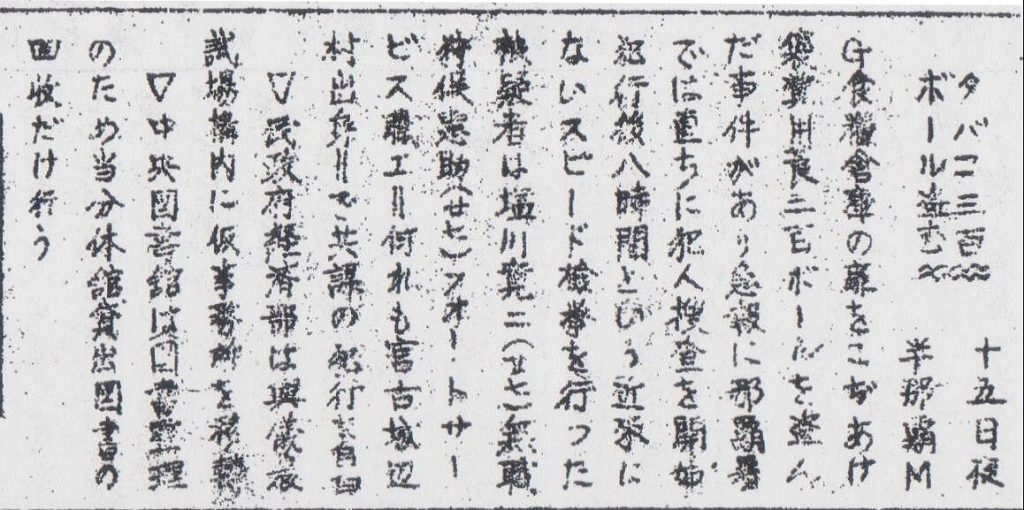 タバコ三百
ボール盗む
十五日夜
羊那覇M
G食糧倉庫の扉をこぢあけ
煙草用良二百ボールを盗ん
だ事件があり急報に那覇署
では直ちに犯人捜査を開始
犯行後八時間という近来に
ないスピード検挙を行った
被疑者は塩川寛二(廿七)無職
仲俣憲助(廿七)フオートサー
ビス職工=何れも宮古城辺
村出身=で共謀の犯行を自白
▽民政府経済部は与儀農
試場構内に仮事務所を移転
▽中央図書館は図書整理
のため当分休館貸出図書の
回収だけ行う